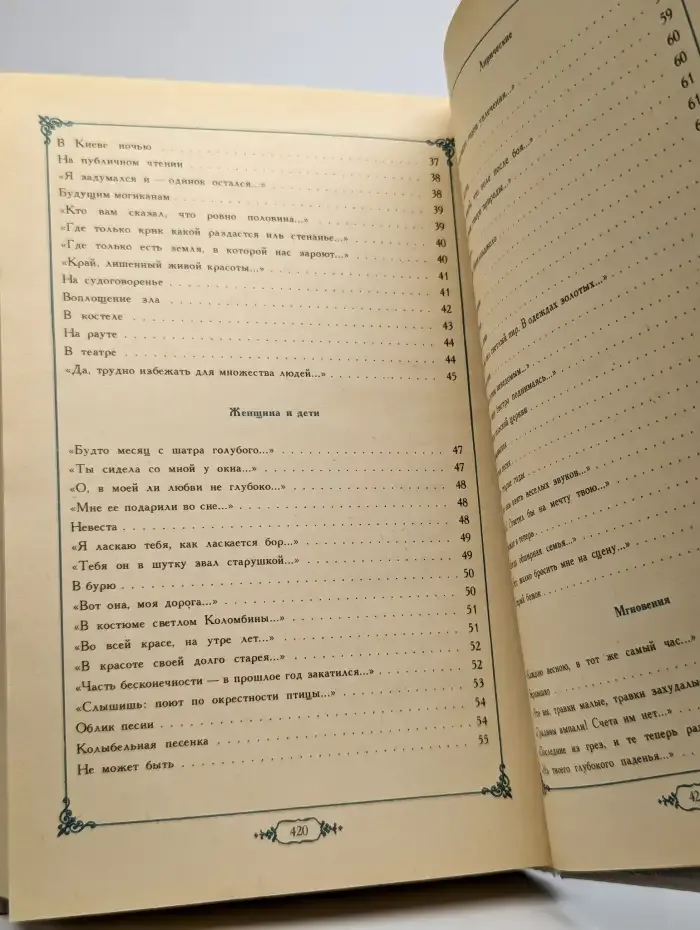 В Киеве ночью
На публичном чтении 37
«Я задумался и — одинок остался...» 38
Будущим могиканам 38
«Кто вам сказал, что ровно половина...» 39
«Где только крик какой раздастся иль стенанье...» 39
«Где только есть земля, в которой нас зароют...» 40
«Край, лишенный живой красоты...» 40
На судоговоренье 41
Воплощение зла 41
В костеле 42
На рауте 43
В театре 44
«Да, трудно избежать для множества людей...» 44
45
Женщина и дети
«Будто месяц с шатра голубого...» 47
«Ты сидела со мной у окна...» 47
«О, в моей ли любви не глубоко...» 48
«Мне ее подарили во сне...» 48
Невеста 48
«Я ласкаю тебя, как ласкается бор...» 49
«Тебя он в шутку звал старушкой...» 49
В бурю 50
«Вот она, моя дорога...» 50
«В костюме светлом Коломбины...» 51
«Во всей красе, на утре лет...» 51
«В красоте своей долго старея...» 52
«Часть бесконечности — в прошлое год закатился...» 52
«Слышишь: поют по окрестности птицы...» 53
Облик песни 54
Колыбельная песенка 54
Не может быть 55
420
59
Лирические 60
60
61
61
увлечения...»
теле после боя...»
природы...»
светлый пир. В одеждах золотых...»
неведомым...»
быстро поднимаясь...»
церкви
годы
веселых звуков...»
Ответил бы на мечту твою...»
и теперь
обширная семья...»
жалко бросить мне на сцену...»
бенок
Мгновения
весною, в тот же самый час...»
травки малые, травки захудалы
выпали! Счета им нет...»
из грез, и те теперь раз
твоего глубокого паденья...»
42